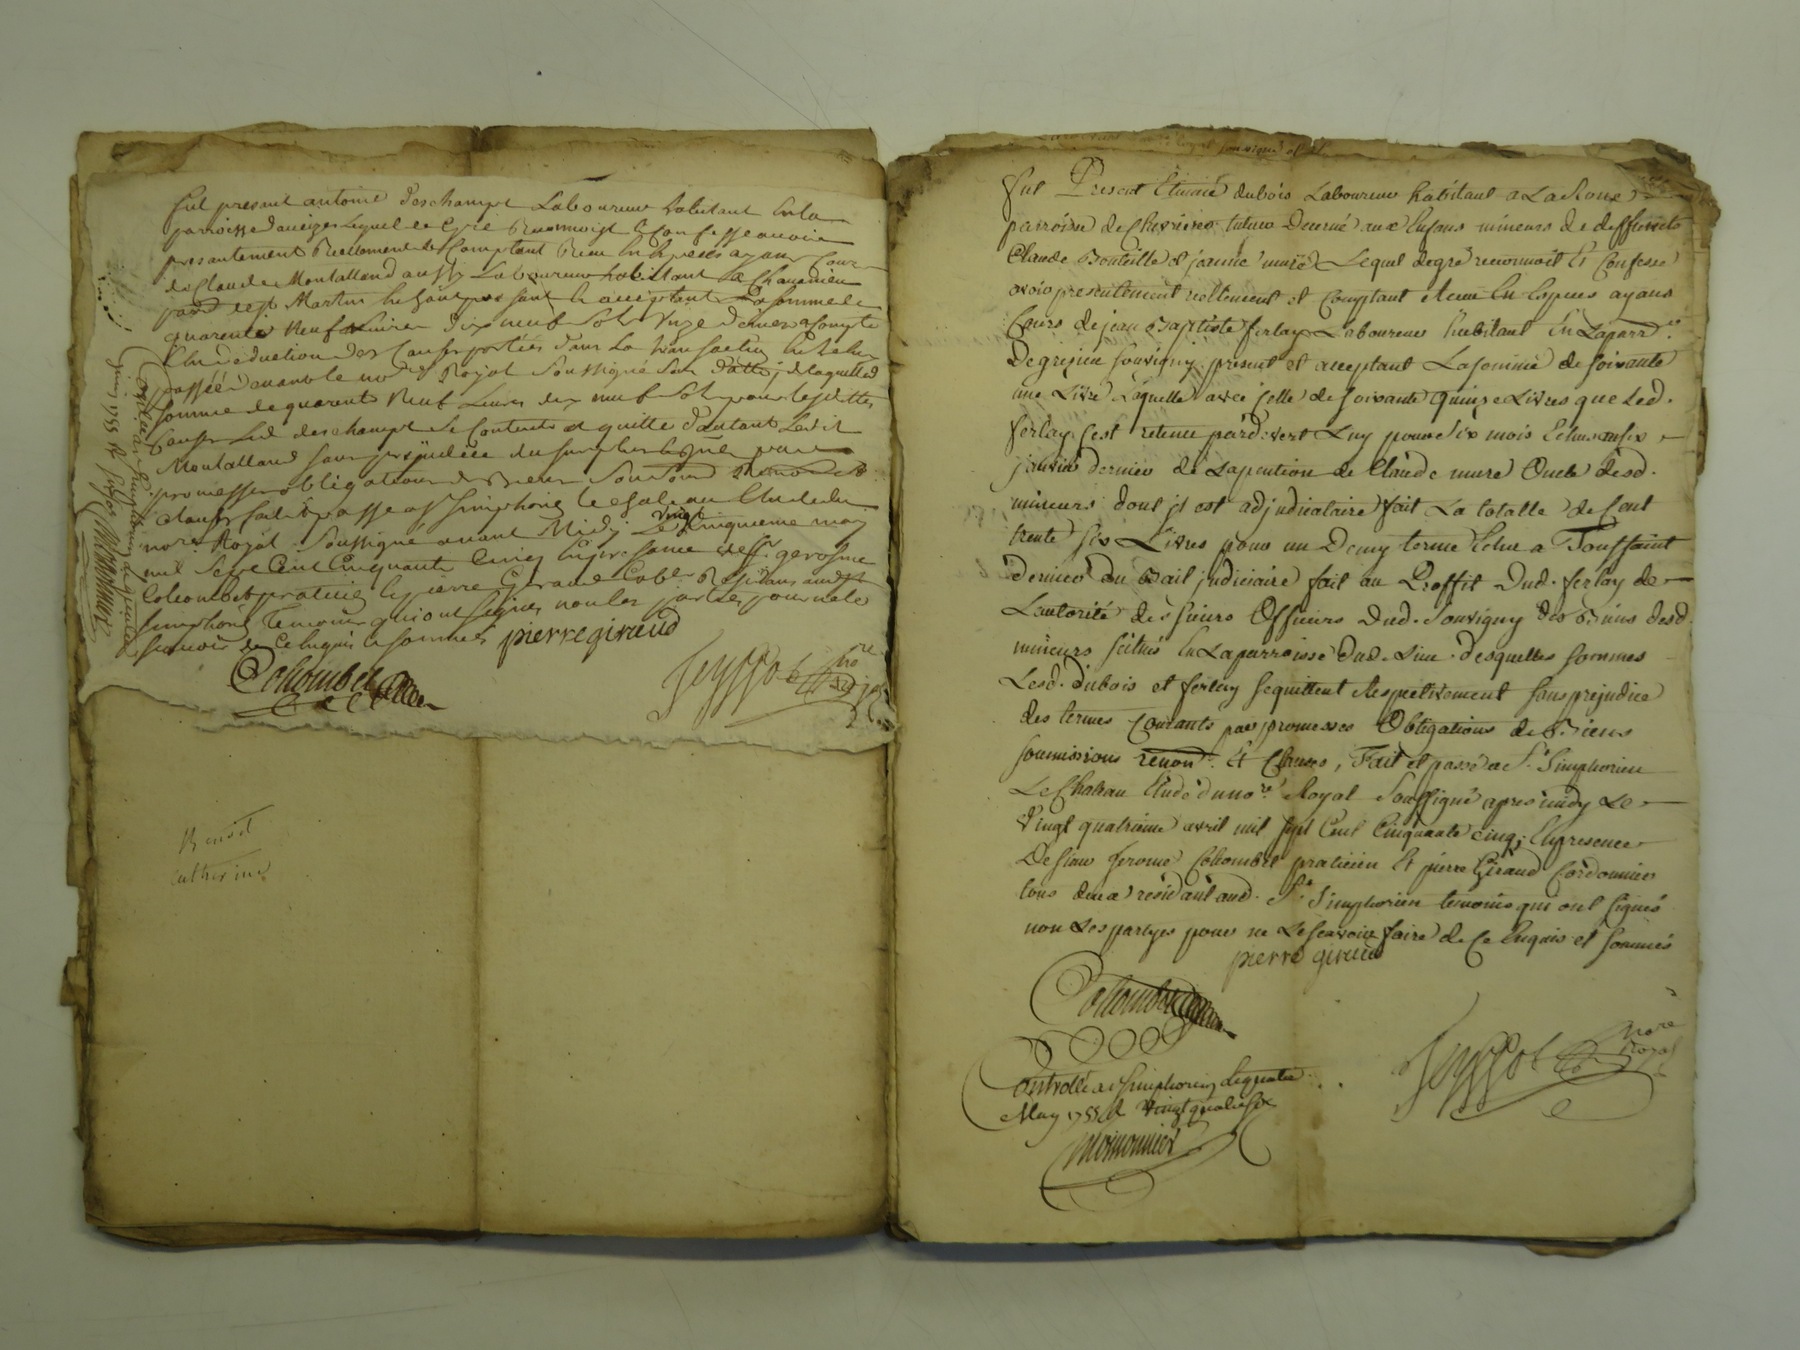 fut present antoine deschamps Laboureur habitant en la
parroisse d'aveizes Lequel de gré Reconnoist & Confesse avoir
presentement Reellement & Comptant Receu En Especes ayant Cours
de Claude Montalland aussy Laboureur habitant a Chavanieu
parr. de St. Martin
quarante Neuf Livres dix neuf Sols onze deniers a Compte
Et En deduction des Causes portées dans La transaction
passée devant le no.re Royal Soussigné de Laquelle
somme de quarente Neuf Livres dix neuf Sols
Causes Led. deschamps Se Contente & quitte d'autant Ledit
Montalland sans prejudice du surplus
promesses obligations de Biens Soum.
Clauses fait & passé a St. Simphorien le Chateau Etude du
no.re Royal Soussigné avant Midy Le vingt Cinquieme may
mil Sept Cent Cinquante Cinq En presence de Sr. gerosme
Colombet praticien & pierre Giraud Cord.r Residans aud. St.
Simphorien Temoins qui ont Signés non les parties pour ne le
scavoir de Ce Enquis & sommés pierre giraud
Colombet
Jeyssot no.re Royal
juin 1755
Benoit
Catherine
fut Present Etienne dubois Laboureur habitant a La Roue
parroisse de Chevrieres tuteur Decerné aux Enfans mineurs de deffuncts
Claude Bouteille & jeanne mure Lequel de gré reconnoit Et Confesse
avoir presentement reellement et Comptant Receu En Especes ayans
Cours de jean Baptiste ferlay Laboureur habitant En La parr.
De grezieu Souvigny present et acceptant La somme de soixante
une Livre Laquelle avec jcelle de soixante quinze Livres que Led.
ferlay s'est retenu pardevert Luy pour six mois Echus au six
janvier dernier de La pention de Claude mure Oncle desd.
mineurs dont jl est adjudicataire fait La totalle de Cent
trente six Livres pour un Demy terme Echu a Toussaint
Dernier du Bail judiciaire fait au Proffit Dud. ferlay de
L'autorité des sieurs Officiers Dud. Souvigny des Biens desd.
mineurs scitués En La parroisse Dud. Lieu. desquelles sommes
Lesd. Dubois et ferlay se quittent Respectivement sans prejudice
des termes Courants par promesses Obligations de Biens
soumissions renon.s Et Clauses, Fait et passé a St. Simphorien
Le Chateau Etude du no.re Royal Soussigné apres midy Le
Vingt quatrieme avril mil sept Cent Cinquante cinq; En presence
De sieur Jerome Colombet praticien Et pierre Giraud Cordonnier
tous deux residant aud. St. Simphorien temoins qui ont signés
non Les partyes pour ne Le scavoir faire de Ce Enquis et sommés
pierre giraud
Colombet
Jeyssot no.re Royal
Controllé a St. Simphorien Le quatre
May 1755 R. Vingt quatre sols